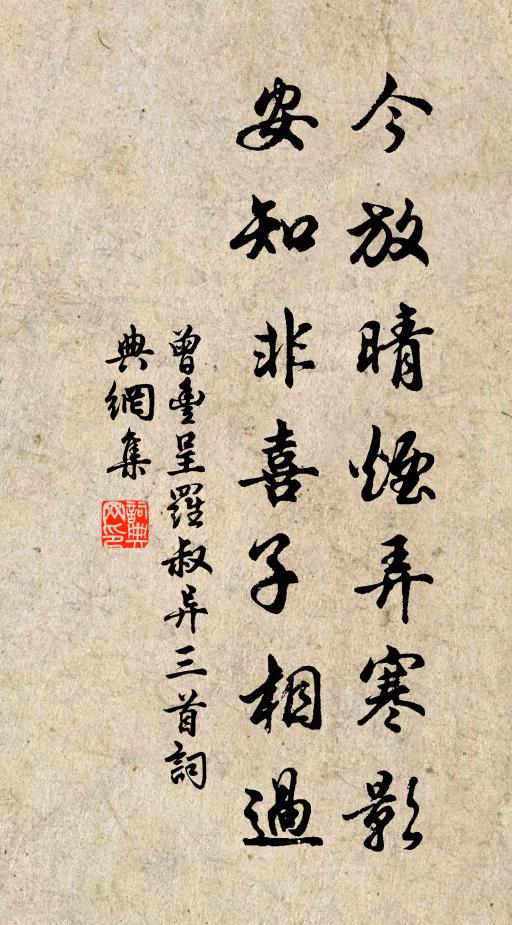 今放晴煙弄寒影
安知非喜子相過
曾豐呈羅叔异三首詞
典網集
詞典
网印